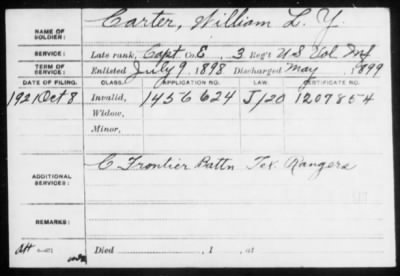 NAME OF SOLDIER: Carter, William L. Y.
SERVICE: Late rank, Capt Co. E, 3 Reg't U S Vol Inf
TERM OF SERVICE: Enlisted July 9, 1898 Discharged May, 1899
DATE OF FILING. CLASS. APPLICATION NO. CERTIFICATE NO.
1921 Oct 8 Invalid, 1456624 J/20 1207854
Widow,
Minor,
ADDITIONAL SERVICES: C Frontier Battn Tex. Rangers
REMARKS:
Died, 1, at